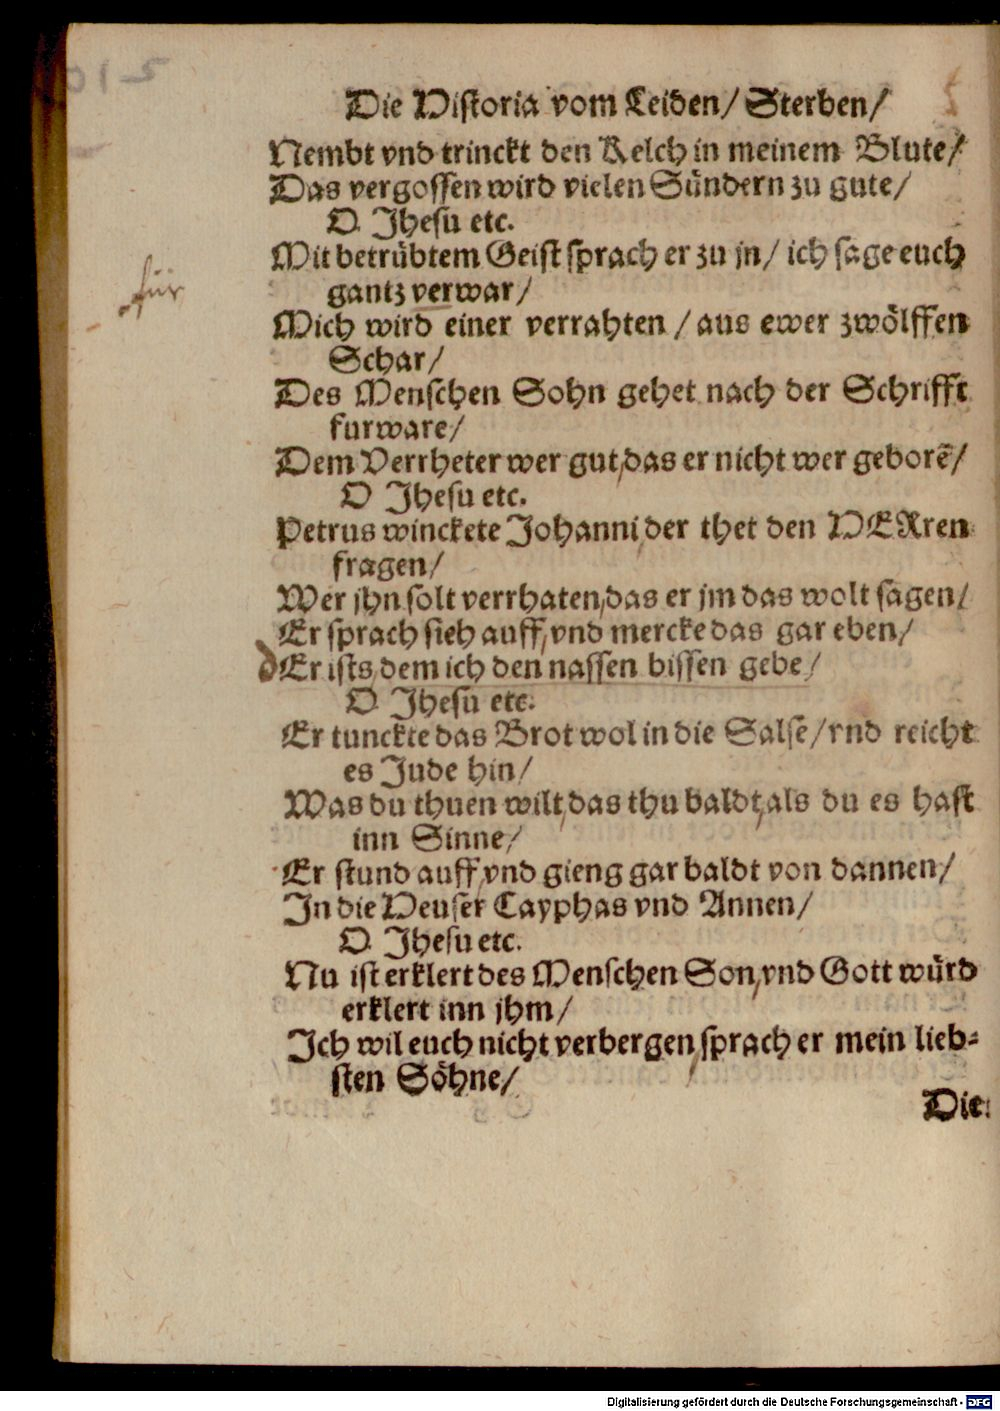 Die Historia vom Leiden/ Sterben/
Nembt vnd trinckt den Kelch in meinem Blute/
Das vergossen wird vielen Sündern zu gute/
O Jhesu etc.
Mit betrübtem Geist sprach er zu jn/ ich sage euch
für
gantz verwar/
Mich wird einer verrahten / aus ewer zwölffen
Schar/
Des Menschen Sohn gehet nach der Schrifft
furware/
Dem Verrheter wer gut/das er nicht wer geborē/
O Jhesu etc.
Petrus winckete Johanni/der thet den HERren
fragen/
Wer jhn solt verrhaten/das er jm das wolt sagen/
Er sprach sieh auff/vnd mercke das gar eben/
Er ists/dem ich den nassen bissen gebe/
O Jhesu etc.
Er tunckte das Brot wol in die Salse/vnd reicht
es Jude hin/
Was du thuen wilt/das thu baldt/als du es hast
inn Sinne/
Er stund auff/vnd gieng gar baldt von dannen/
In die Heuser Cayphas vnd Annen/
O Jhesu etc.
Nu ist erklert des Menschen Son/vnd Gott würd
erklert inn jhm/
Ich wil euch nicht verbergen/sprach er mein lieb-
sten Söhne/
Die
Digitalisierung gefördert durch die Deutsche Forschungsgemeinschaft - DFG